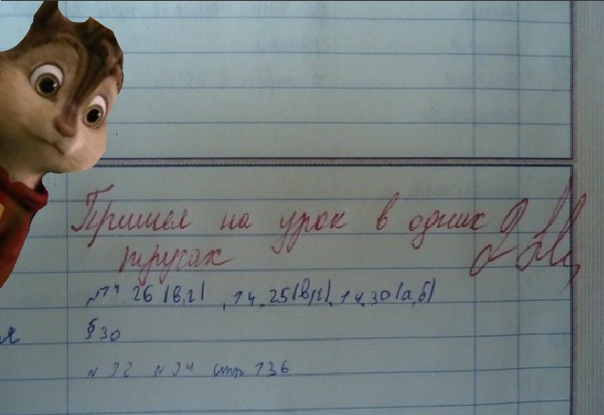 Пришел на урок в одних
трусах
№14.26(в,г), 14.25(в,г), 14.30(а,б)
я §30
№ 92 № 94 стр 136